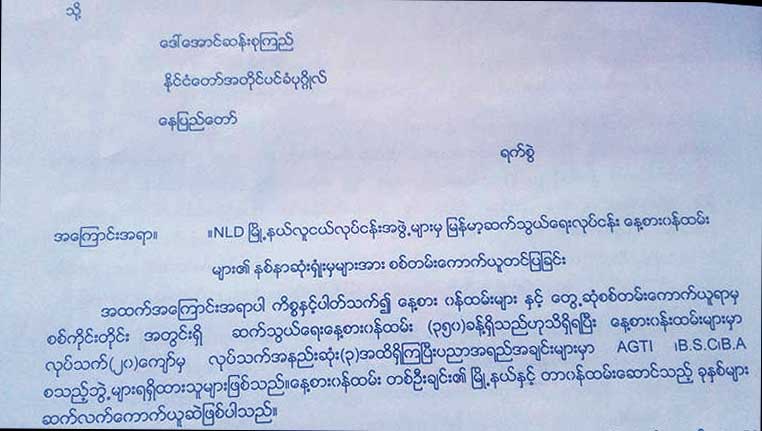 သို့
ဒေါ်အောင်ဆန်းစုကြည်
နိုင်ငံတော်အတိုင်ပင်ခံပုဂ္ဂိုလ်
နေပြည်တော်
ရက်စွဲ
အကြောင်းအရာ။ ။NLD မြို့နယ်လူငယ်လုပ်ငန်းအဖွဲ့များမှ မြန်မာ့ဆက်သွယ်ရေးလုပ်ငန်း နေ့စားဝန်ထမ်း
များ၏ နစ်နာဆုံးရှုံးမှုများအား စစ်တမ်းကောက်ယူတင်ပြခြင်း
အထက်အကြောင်းအရာပါ ကိစ္စနှင့်ပါတ်သက်၍ နေ့စား ဝန်ထမ်းများ နှင့် တွေ့ဆုံစစ်တမ်းကောက်ယူရာမှ
စစ်ကိုင်းတိုင်း အတွင်းရှိ ဆက်သွယ်ရေးနေ့စားဝန်ထမ်း (၃၅၀)ခန့်ရှိသည်ဟုသိရှိရပြီး နေ့စားဝန်းထမ်းများမှာ
လုပ်သက်(၂၀)ကျော်မှ လုပ်သက်အနည်းဆုံး(၃)အထိရှိကြပြီးပညာအရည်အချင်းများမှာ AGTI ၊B.S.C၊B.A
စသည့်ဘွဲ့များရရှိထားသူများဖြစ်သည်။နေ့စားဝန်ထမ်း တစ်ဦးချင်း၏ မြို့နယ်နှင့် တာဝန်ထမ်းဆောင်သည့် ခုနှစ်များ
ဆက်လက်ကောက်ယူဆဲဖြစ်ပါသည်။